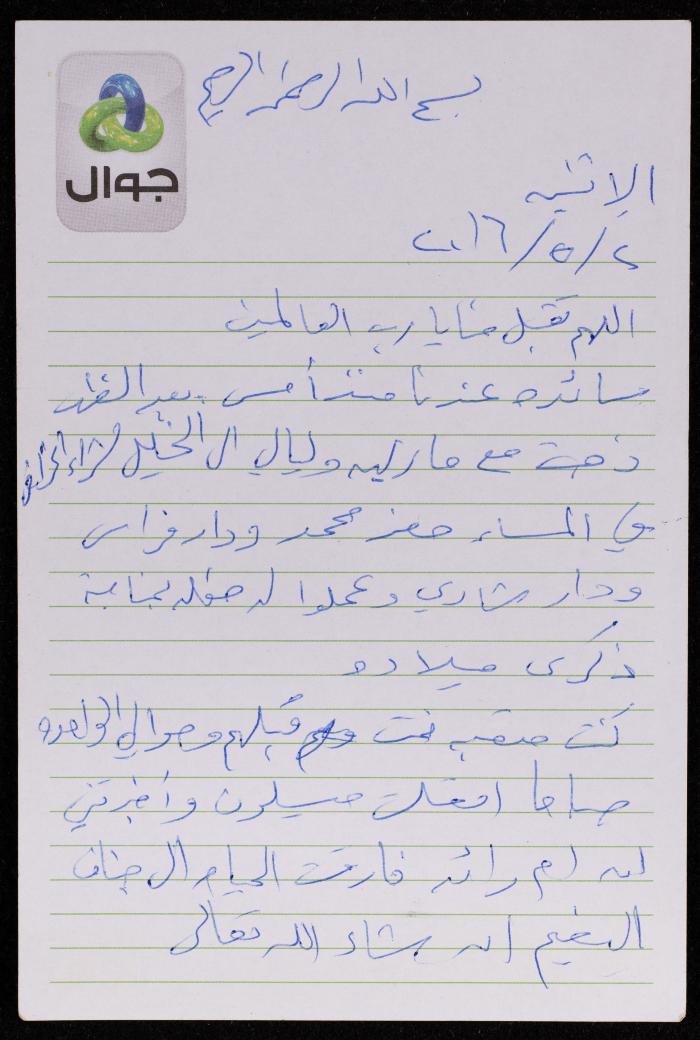 جوال
بسم الله الرحمن الرحيم
الاثنين
٢/٥/٢٠١٦
اللهم تقبل منا يا رب العالمين
سائده عندنا منذ أمس. بعد الظهر
ذهبت مع مارلين وليالي الى الخليل لشراء
في المساء حضر محمد ودار فراس
ودار شادي وعملوا له حفله بمناسبة
ذكرى ميلاده
كنت متعبه نمت قبلهم وحوالي الواحده
صباحا اتصلت ميسلون وأخبرتني
ان ام رائد فارقت الحياه الى جنات
النعيم ان شاء الله تعالى